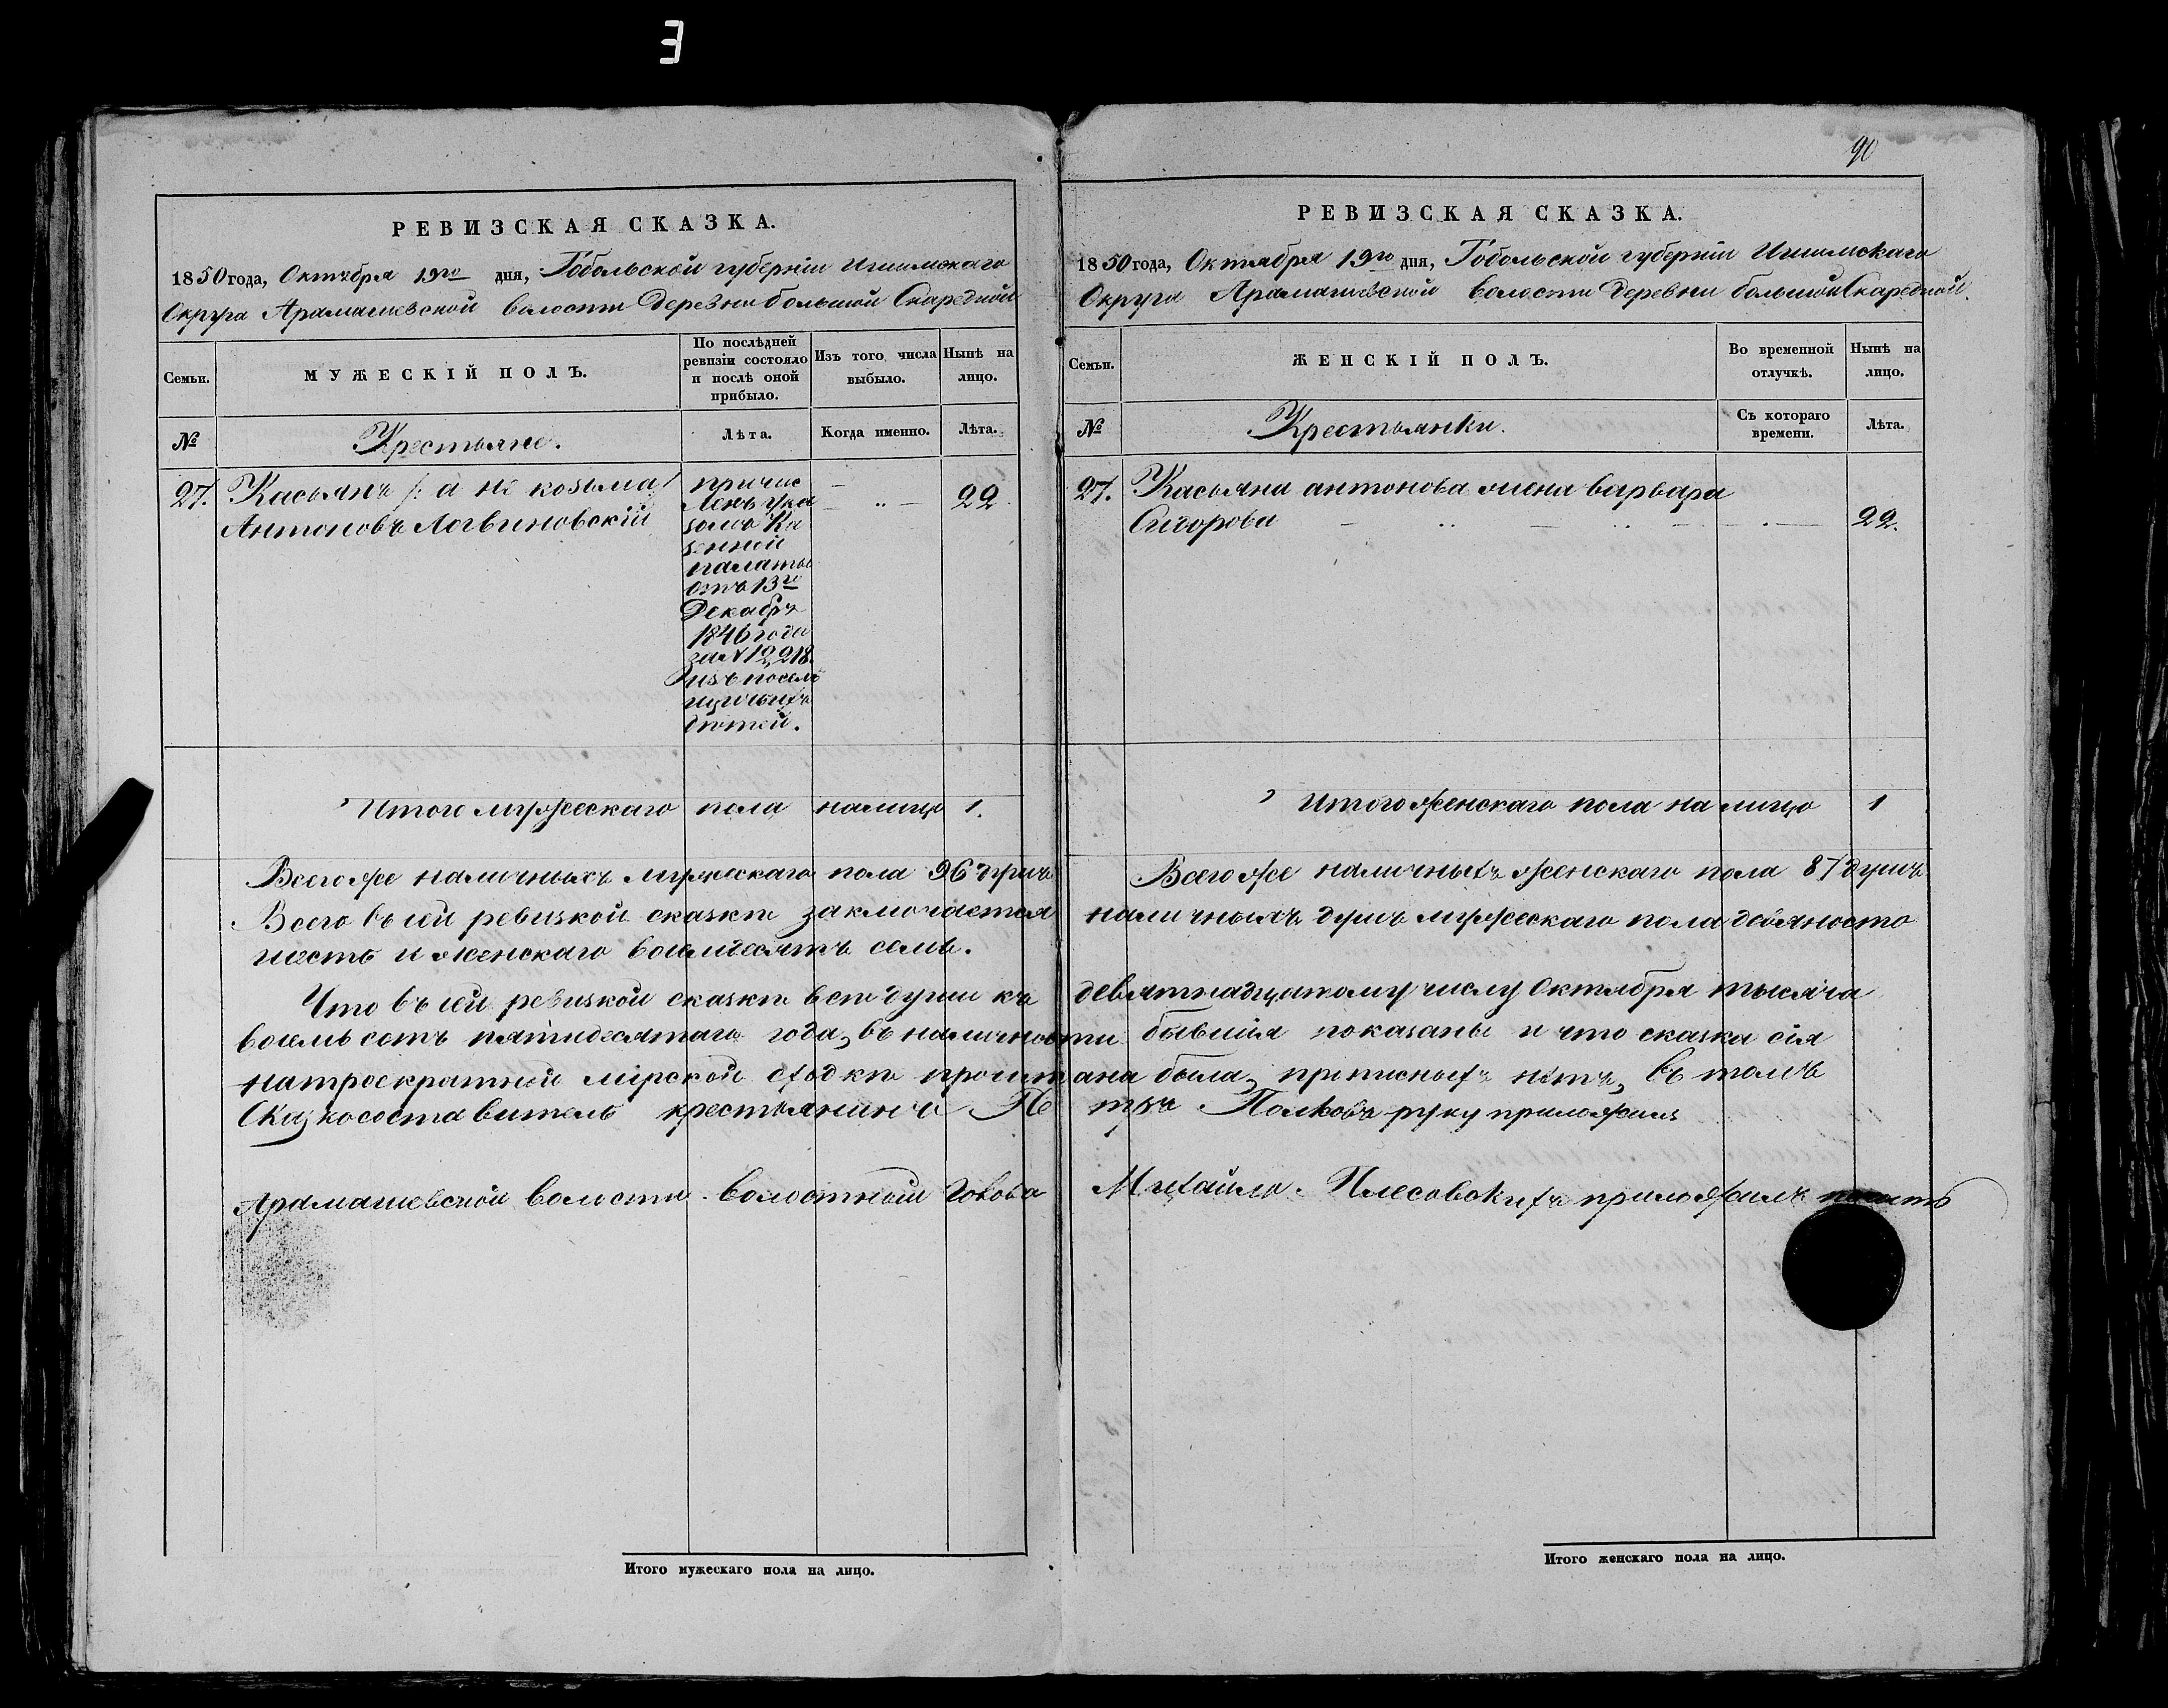 90
РЕВИЗСКАЯ СКАЗКА.
1850 года, Октября 19го дня, Тобольской губерніи Ишимскаго
Округа Арамашевской волости Деревни большой Скаредной
Семьи.
МУЖЕСКІЙ ПОЛЪ.
По послѣдней
ревизіи состояло
и послѣ оной
прибыло.
Изъ того числа
выбыло.
Нынѣ на
лицо.
№
Крестьяне.
Лѣта.
Когда именно.
Лѣта.
27. Касьянъ /: а не козьма/
Антоновъ Логвиновскій
причис
ленъ ука
зомъ Ка
зенной
палаты
отъ 13го
Декабря
1846 года
за № 19,218.
изъ посель
щичьихъ
дѣтей.
22
Итого мужескаго пола налицо 1.
Всего же наличныхъ мужескаго пола 96 душъ
РЕВИЗСКАЯ СКАЗКА.
1850 года, Октября 19го дня, Тобольской губерніи Ишимскаго
Округа Арамашевской волости Деревни большой Скаредной.
Семьи.
ЖЕНСКІЙ ПОЛЪ.
Во временной
отлучкѣ.
Нынѣ на
лицо.
№
Крестьянки.
Съ котораго
времени.
Лѣта.
27. Касьяна антонова жена варвара
Сидорова 22.
Итого женскаго пола на лицо 1
Всего же наличныхъ женскаго пола 87 душъ
Всего въ сей ревизкой сказкѣ заключается наличныхъ душъ мужескаго пола девяносто
шесть и женскаго восемдесятъ семь.
Что въ сей ревизкой сказкѣ всѣ души къ девятнадцатому числу Октября тысяча
восемь сотъ пятидесятаго года, въ наличности бывшія показаны и что сказка сія
на троекратной мірской сходкѣ прочитана была, прописныхъ нѣтъ, въ томъ
Сказкосоставитель крестьянинъ Петръ Полковъ руку приложилъ
Арамашевской волости волостный Голова Михайло Плесовскихъ приложилъ печать
Итого мужескаго пола на лицо.
Итого женскаго пола на лицо.